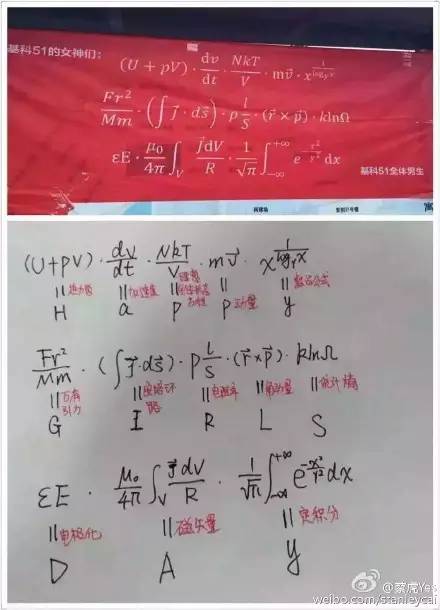 基科51的女神们：
(U + pV) · dv/dt · NkT/V · mv⃗ · x^(1/log_y x)
Fr²/Mm · (∬ j⃗ · ds⃗) · ρ l/S · (r⃗ × p⃗) · klnΩ
εE · μ₀/4π ∫_V j⃗dV/R · 1/√π ∫_{-∞}^{+∞} e^(-x²/y²) dx
基科51全体男生
(U+pV) · dv/dt · NkT/V · mv⃗ · x^(1/log_y x)
|| 热力学 || 加速度 || 理想气体状态方程 || 动量 || 数学公式
H a p p y
Fr²/Mm · (∫ j⃗·ds⃗) · ρ L/S · (r⃗×p⃗) · klnΩ
|| 万有引力 || 路 || 电阻率 || 角动量 || 统计熵
G I R L S
εE · μ₀/4π ∫_V J⃗dV/R · 1/√π ∫_{-∞}^{+∞} e^(-x²/y²) dx
|| 电极化 || 磁矢量 || 定积分
D A y
@蔡虎Yes
weibo.com/stanleycai